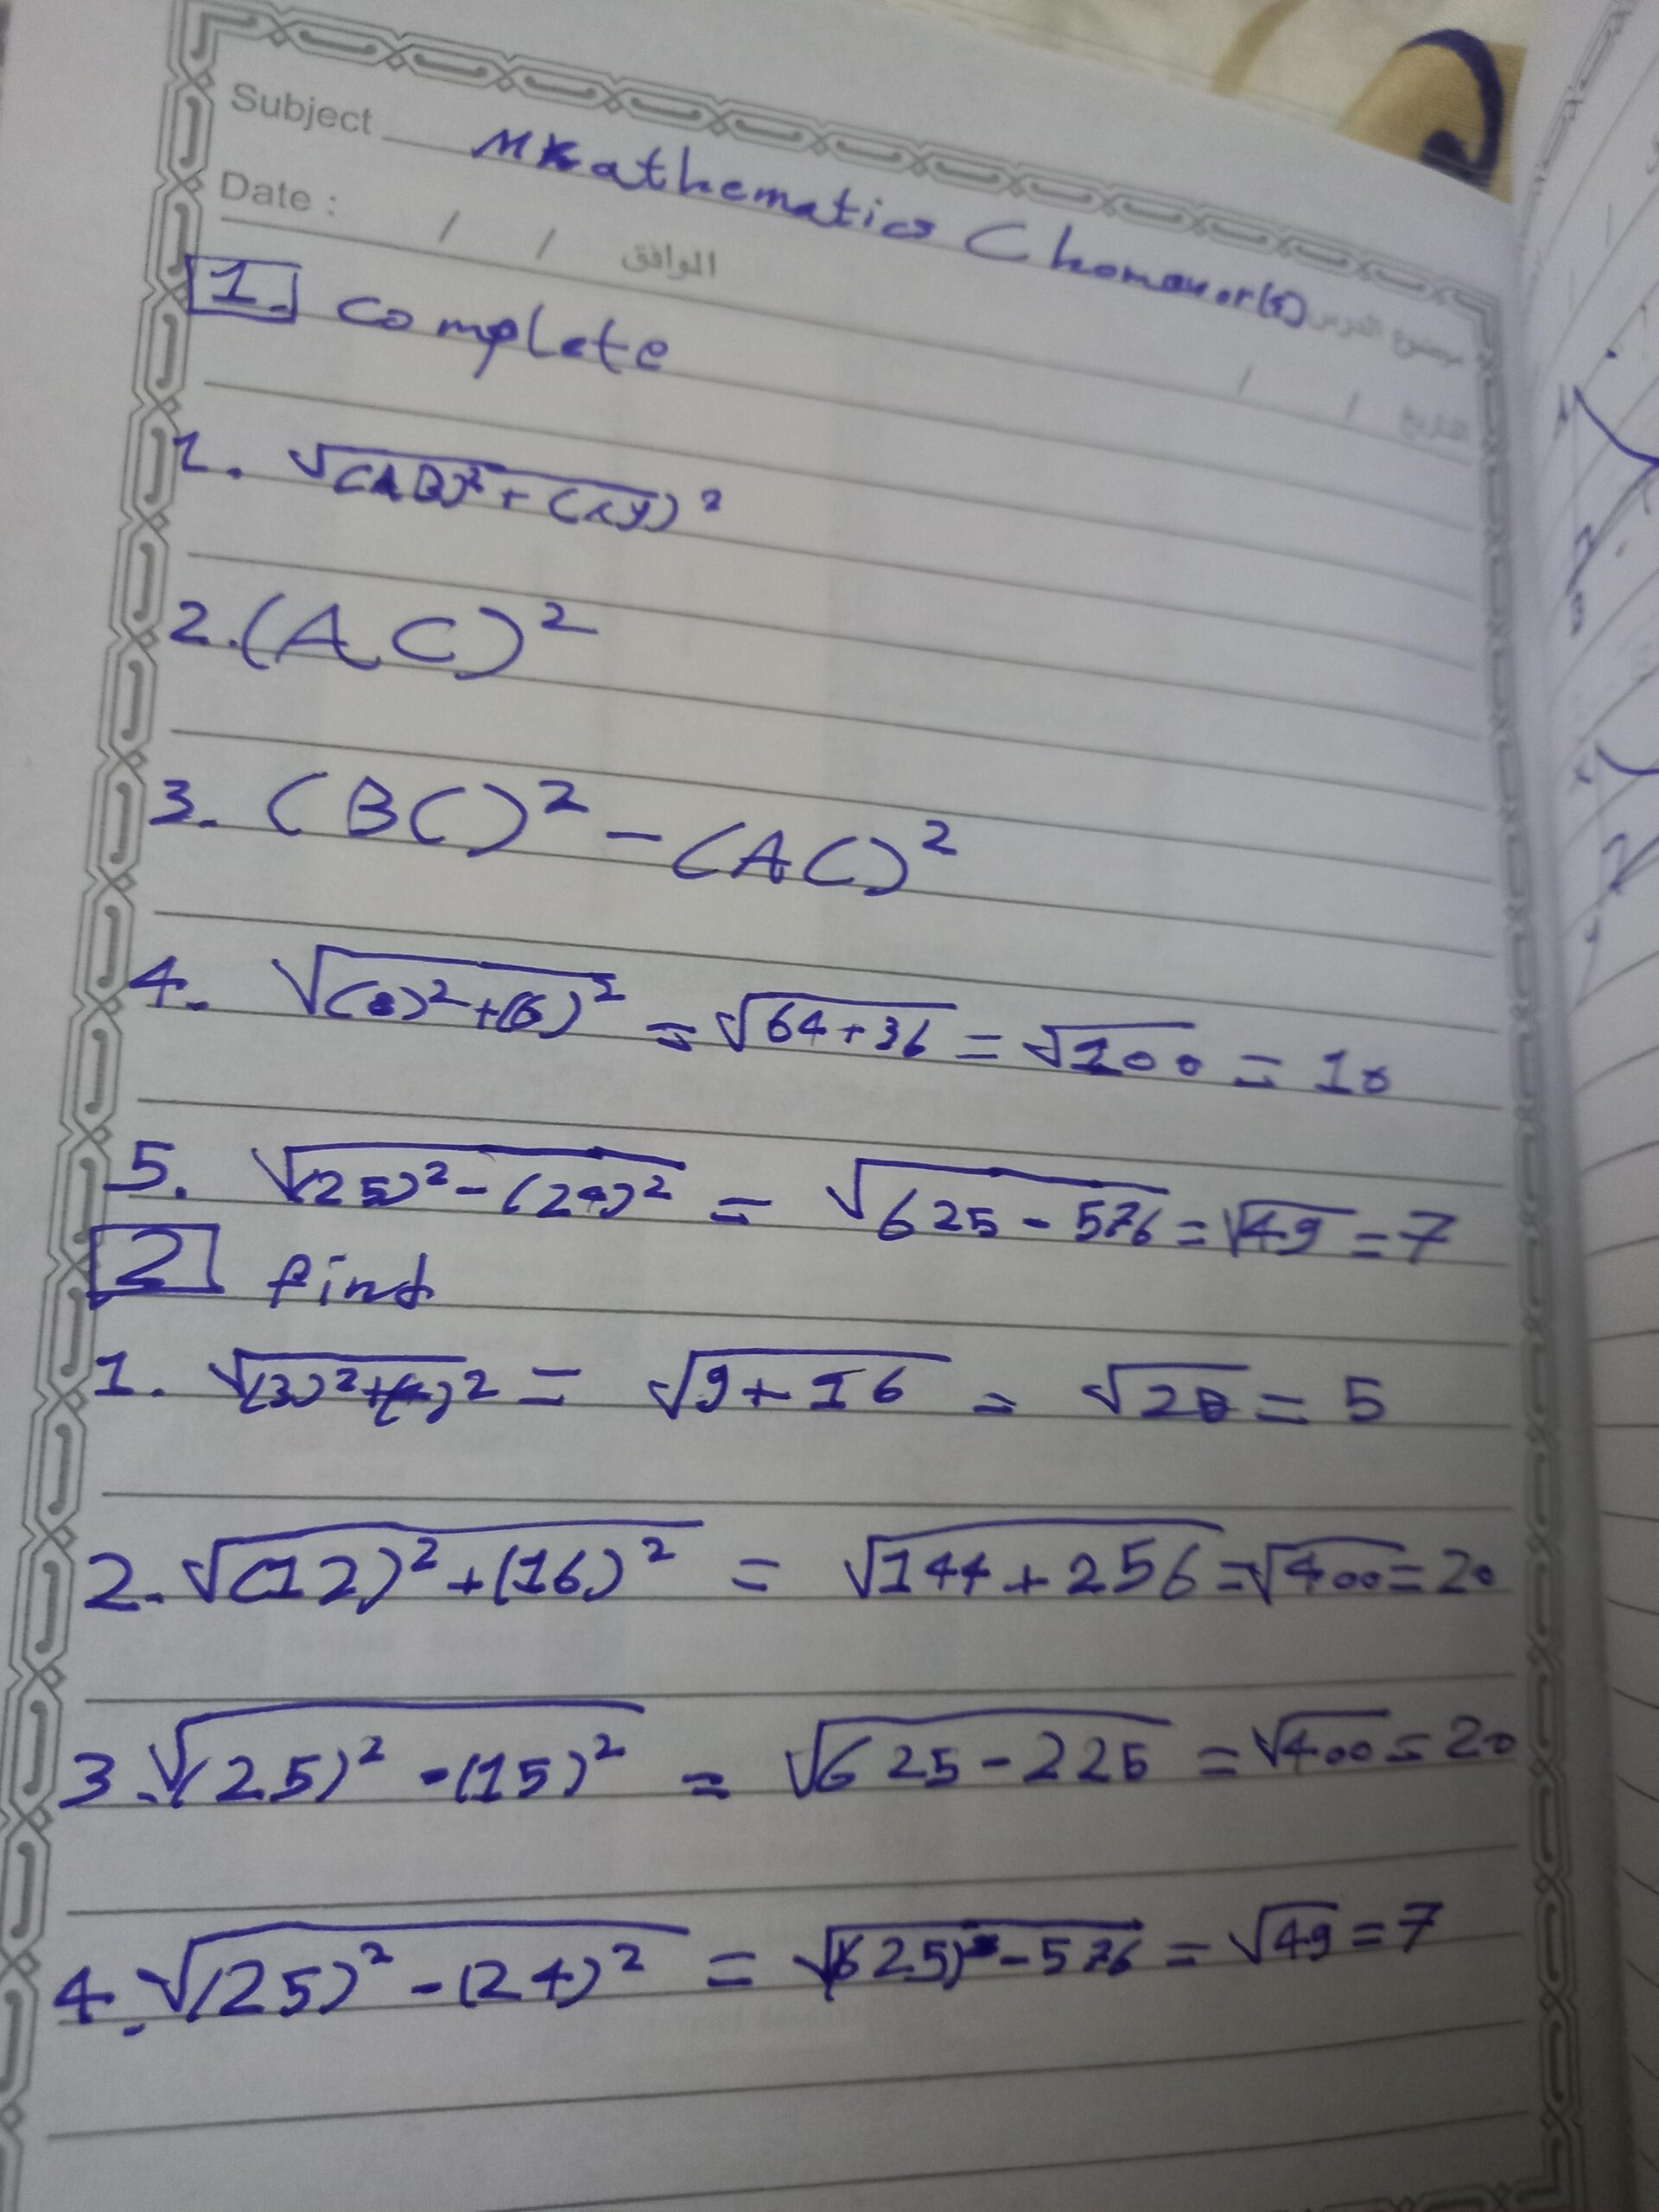 Subject Mathematics Chomewor(5) موضوع الدرس
Date : / / الموافق / / التاريخ
1. Complete
1. √(AB)² + (xy)²
2. (AC)²
3. (BC)² - (AC)²
4. √(8)² + (6)² = √64 + 36 = √100 = 10
5. √(25)² - (24)² = √625 - 576 = √49 = 7
2 find
1. √(3)² + (4)² = √9 + 16 = √25 = 5
2. √(12)² + (16)² = √144 + 256 = √400 = 20
3. √(25)² - (15)² = √625 - 225 = √400 = 20
4. √(25)² - (24)² = √(625) - 576 = √49 = 7